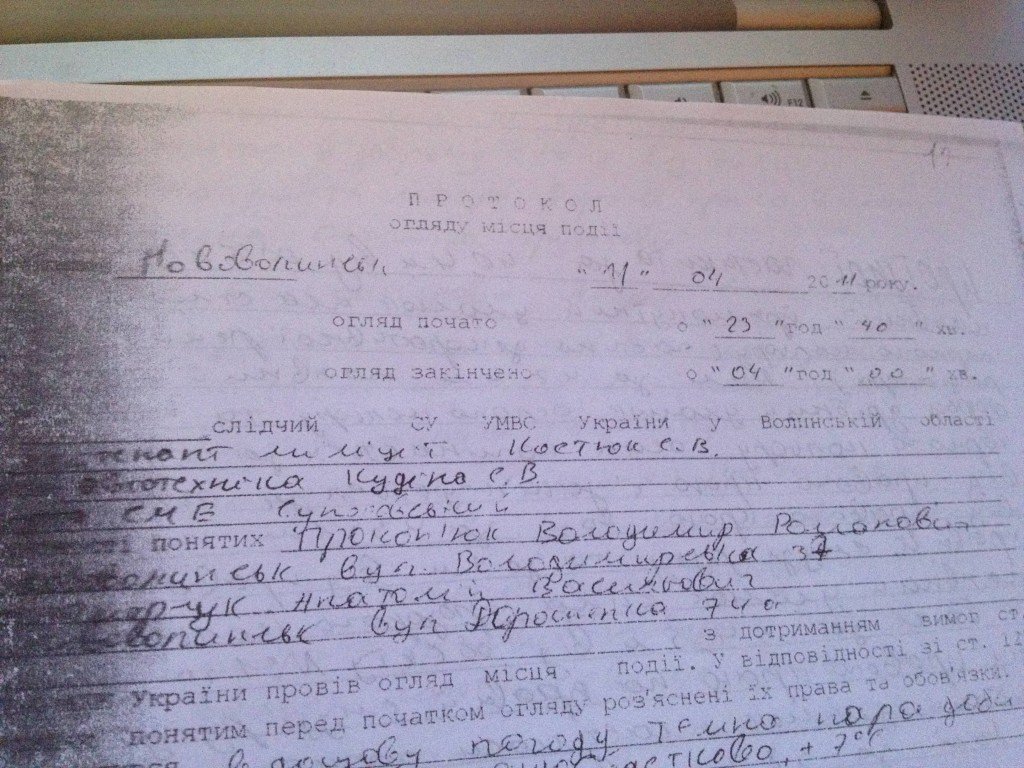 F12
ПРОТОКОЛ
огляду місця події
Нововолинськ "11" 04 2011 року.
огляд почато о "23 "год "40 " хв.
огляд закінчено о "04 "год "00 " хв.
слідчий СУ УМВС України у Волинській області
міліції Костюк Є.В.
техніка Кудіна Є.В
СМЕ
понятих Прокоп'юк Володимир Романович
вул Володимирська 37
Анатолій Васильович
вул 74а
з дотриманням вимог ст.
України провів огляд місця події. У відповідності зі ст. 12
понятим перед початком огляду роз'яснені їх права та обов'язки.
погоду темна пора доби
+7°С